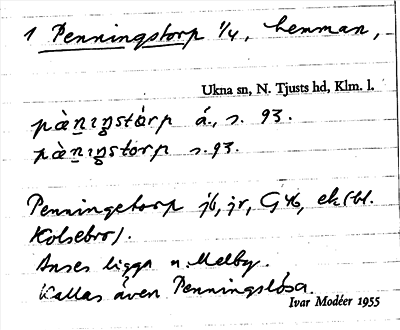 1 Penningstorp 1/4, hemman,
Ukna sn, N. Tjusts hd, Klm. l.
pàni̢ŋstórp å., s. 93.
pàni̢ŋstorp s. 93.
Penningetorp jb, jr, G 46, ek (bl.
Kolsebro).
Anses ligga u. Melby.
Kallas även Penningslösa.
Ivar Modéer 1955